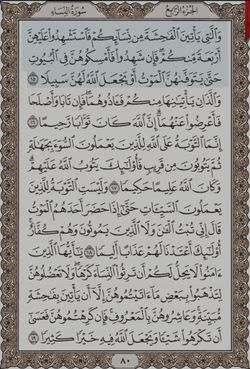 الجزء الرابع
سورة النساء
وَالَّٰتِي يَأْتِينَ الْفَاحِشَةَ مِن نِّسَائِكُمْ فَاسْتَشْهِدُوا عَلَيْهِنَّ
أَرْبَعَةً مِّنكُمْ فَإِن شَهِدُوا فَأَمْسِكُوهُنَّ فِي الْبُيُوتِ
حَتَّىٰ يَتَوَفَّاهُنَّ الْمَوْتُ أَوْ يَجْعَلَ اللَّهُ لَهُنَّ سَبِيلًا ١٥
وَالَّذَانِ يَأْتِيَانِهَا مِنكُمْ فَآذُوهُمَا فَإِن تَابَا وَأَصْلَحَا
فَأَعْرِضُوا عَنْهُمَا إِنَّ اللَّهَ كَانَ تَوَّابًا رَّحِيمًا ١٦
إِنَّمَا التَّوْبَةُ عَلَى اللَّهِ لِلَّذِينَ يَعْمَلُونَ السُّوءَ بِجَهَالَةٍ
ثُمَّ يَتُوبُونَ مِن قَرِيبٍ فَأُولَٰئِكَ يَتُوبُ اللَّهُ عَلَيْهِمْ
وَكَانَ اللَّهُ عَلِيمًا حَكِيمًا ١٧ وَلَيْسَتِ التَّوْبَةُ لِلَّذِينَ
يَعْمَلُونَ السَّيِّئَاتِ حَتَّىٰ إِذَا حَضَرَ أَحَدَهُمُ الْمَوْتُ
قَالَ إِنِّي تُبْتُ الْآنَ وَلَا الَّذِينَ يَمُوتُونَ وَهُمْ كُفَّارٌ
أُولَٰئِكَ أَعْتَدْنَا لَهُمْ عَذَابًا أَلِيمًا ١٨ يَا أَيُّهَا الَّذِينَ
آمَنُوا لَا يَحِلُّ لَكُمْ أَن تَرِثُوا النِّسَاءَ كَرْهًا وَلَا تَعْضُلُوهُنَّ
لِتَذْهَبُوا بِبَعْضِ مَا آتَيْتُمُوهُنَّ إِلَّا أَن يَأْتِينَ بِفَاحِشَةٍ
مُّبَيِّنَةٍ وَعَاشِرُوهُنَّ بِالْمَعْرُوفِ فَإِن كَرِهْتُمُوهُنَّ فَعَسَىٰ
أَن تَكْرَهُوا شَيْئًا وَيَجْعَلَ اللَّهُ فِيهِ خَيْرًا كَثِيرًا ١٩
٨٠